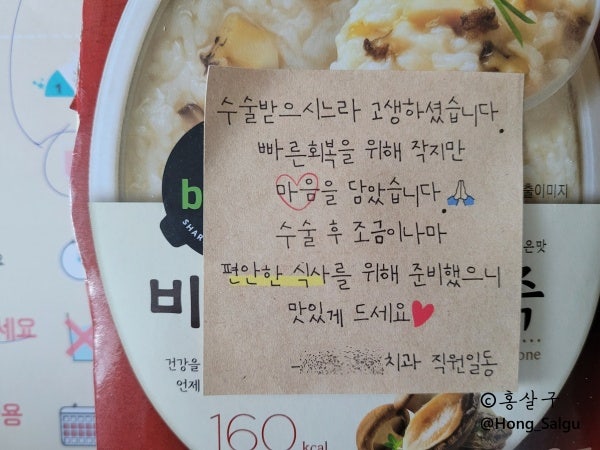 수술받으시느라 고생하셨습니다.
빠른회복을 위해 작지만
마음을 담았습니다.
수술 후 조금이나마
편안한 식사를 위해 준비했으니
맛있게 드세요
치과 직원일동
b
SHAR
출이미지
은맛
비
죽
one
건강을
언제
160 kcal
세요
용
1
©홍살구
@Hong_Salgu